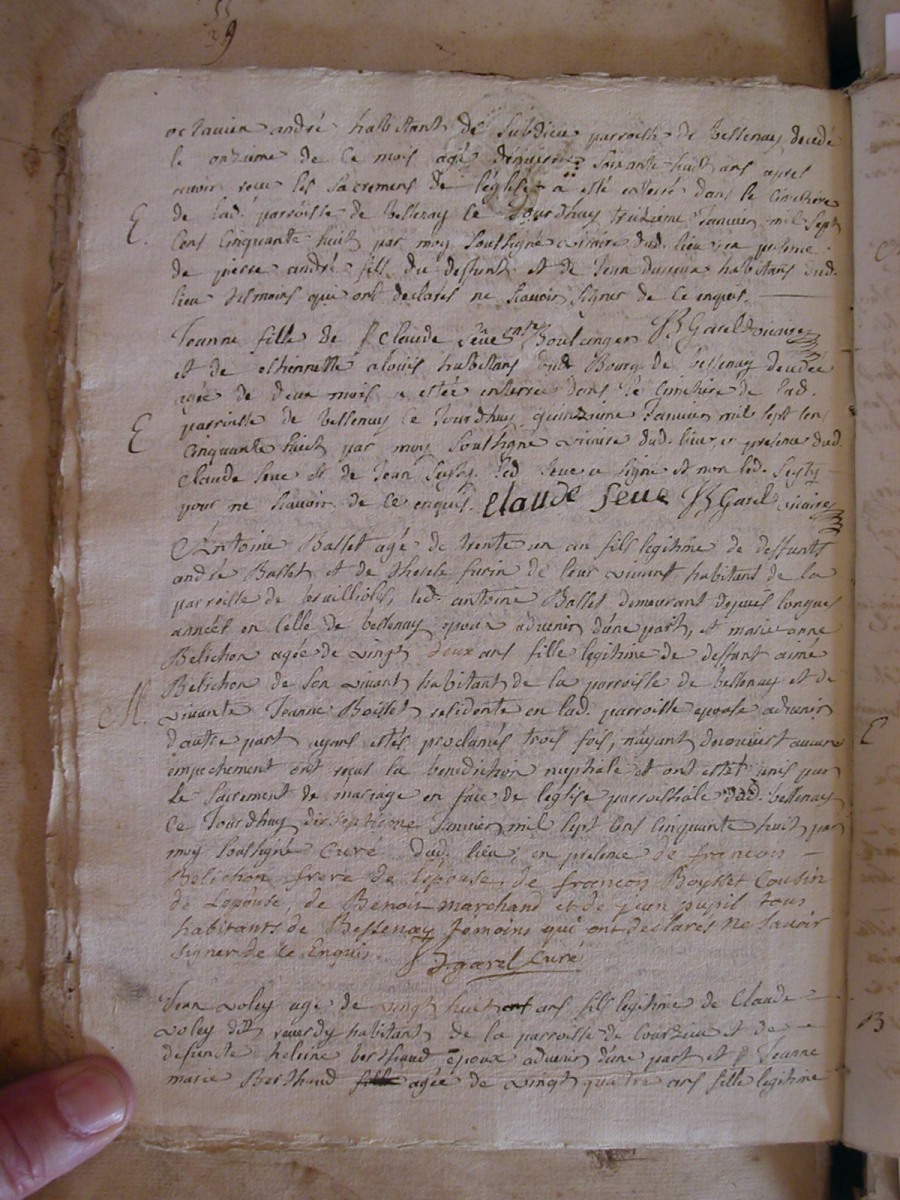 octavien andré habitant de Subdieu parroisse de Bessenay decedé
le onzieme de ce mois agé denviron soixante huit ans apres
avoir receu les sacremens de léglise a esté enterré dans le cimetiere
de lad. parroisse de Bessenay ce Jourdhuy treizieme Janvier mil sept
E.
Cens Cinquante huit par moy soussigné vicaire dud. lieu en presence
de pierre andré fils du deffunt et de Jean habitans dud.
lieu tesmoins qui ont declarés ne scavoir signer de ce enquis.
Jeanne fille de Sr Claude Seve Boulanger JB Garel vicaire
et de ethiennette alouis habitans dud. Bourg de Bessenay decedée
agée de deux mois a estée enterrée dans le cimetiere de lad.
parroisse de Bessenay ce Jourdhuy quinzieme Janvier mil sept cens
E
Cinquante huit par moy soussigné vicaire dud. lieu en presence dud.
Claude Seve et de Jean led Seve a signé et non led.
pour ne scavoir de ce enquis. Claude Seve JB Garel vicaire
Antoine Ballet agé de trente un an fils legitime de deffunts
andré Ballet et de therese furin de leur vivant habitant de la
parroisse de led. antoine Ballet demeurant depuis longues
années en Celle de bessenay epoux advenir d'une part, et marie anne
Belichon agée de vingt deux ans fille legitime de deffunt aimé
Belichon de son vivant habitant de la parroisse de bessenay et de
M.
vivante Jeanne Boisset residente en lad. parroisse epouse advenir
d'autre part ayans estés proclamés trois fois, n'ayant decouvert aucun
empechement ont reçus la benediction nuptiale et ont estés unis par
le sacrement de mariage en face de léglise parroissiale dud. bessenay
ce Jourdhuy dix septieme Janvier mil sept cens cinquante huit par
moy soussigné Curé dud. lieu, en presence de francois
Belichon frere de lepouse, de francois Boysset Cousin
de Lepouse, de Benoit marchand et de jean pupil tous
habitants de Bessenay temoins qui ont declarés ne savoir
signer de ce Enquis. JB garel curé
Jean Voley agé de vingt huit ans fils legitime de Claude
Voley dit reverdy habitant de la parroisse de Courzieu et de
defuncte heleine berthaud epoux advenir d'une part et Jeanne
marie Berthaud agée de vingt quatre ans fille legitime
E
B